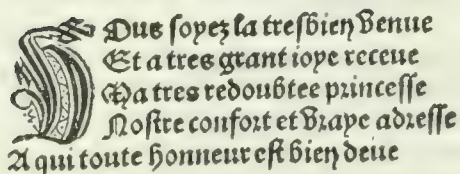 VOus ſoyez la treſbien venue
Et a tres grant ioye receue
Ma tres redoubtee princeſſe
Noſtre confort et vraye adreſſe
A qui toute honneur eſt bien deue